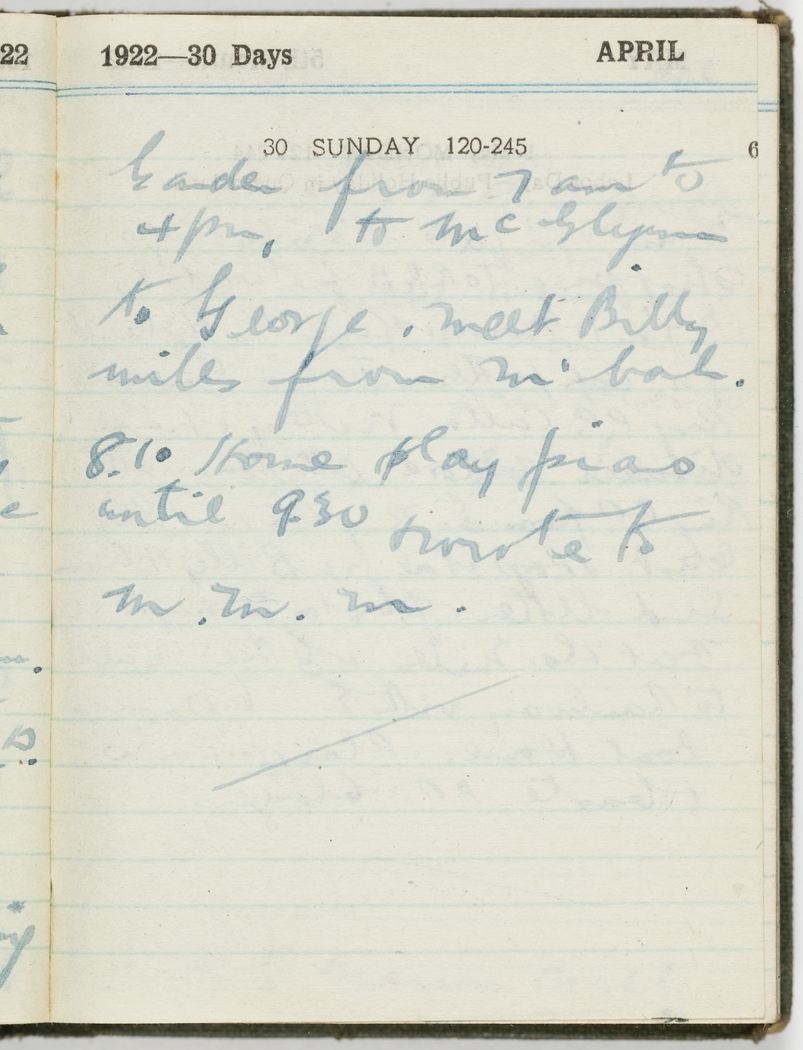 22
1922—30 Days APRIL
30 SUNDAY 120-245
6
Garden from 7 am to
4 pm, to McGlynn
to George. meet Billy
miles from
8.10 Home play piano
until 9.30 wrote to
m. m. m.